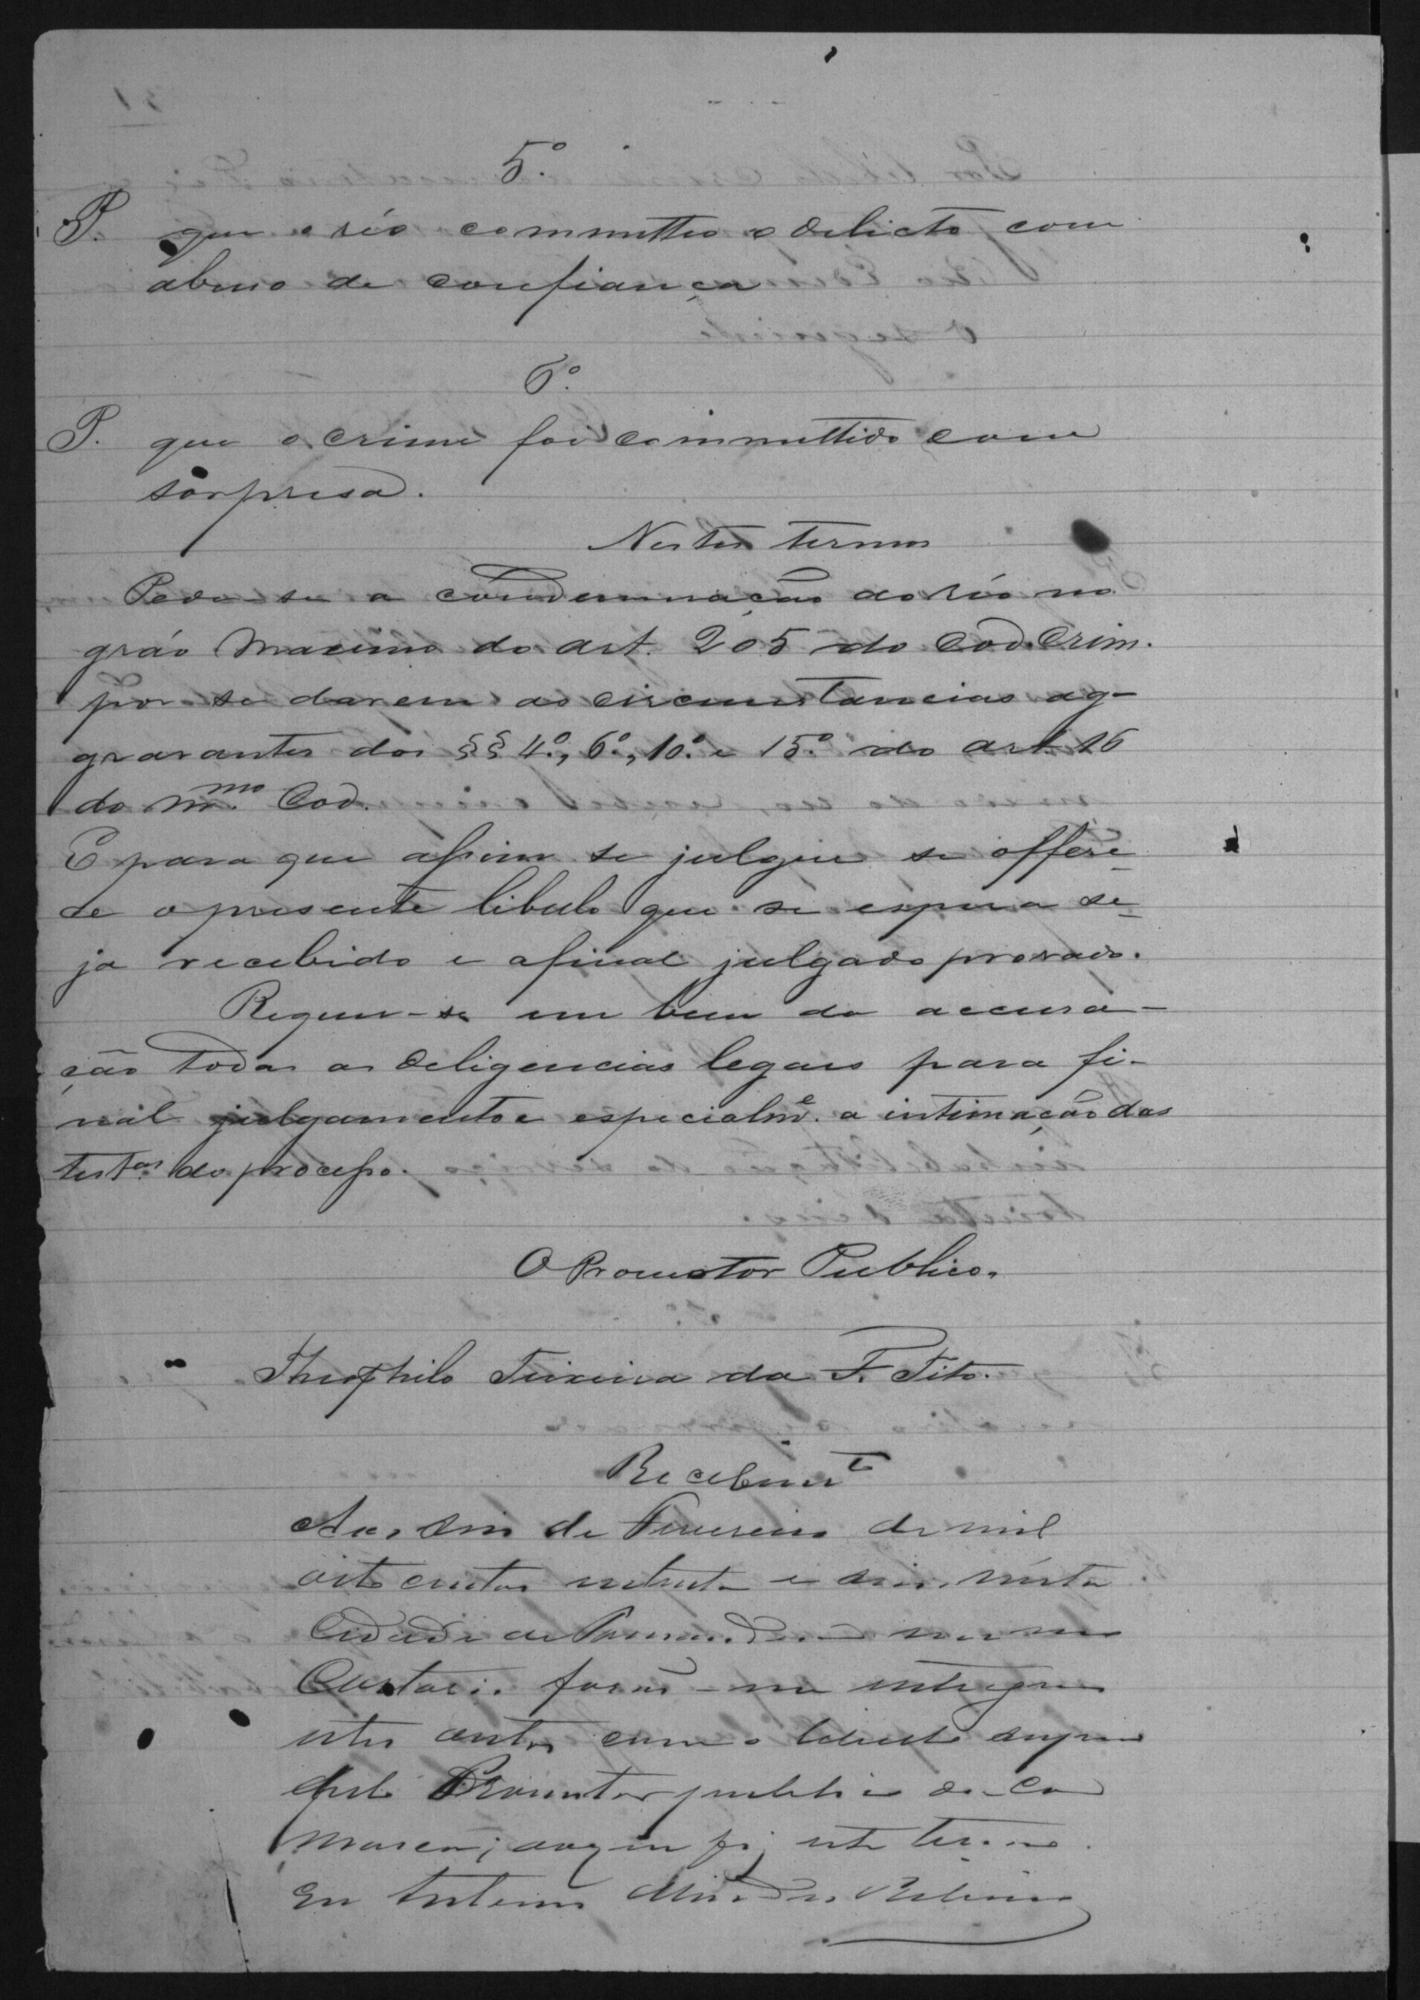 5.º
P. que o réo committeo o delicto com
abuso de confiança
6.º
P. que o crime foi committido com
sorpresa.
Nestes termos
Pede-se a condemnação do réo no
gráo maximo do art. 205 do Cod. Crim.
por se darem as circumstancias ag-
gravantes dos §§ 4.º, 6.º, 10.º e 15.º do art. 16
do m.mo Cod.
E para que assim se julgue se offere-
ce o presente libello que se espera se-
ja recebido e afinal julgado provado.
Requer-se em bem da accusa-
ção todas as deligencias legaes para fi-
nal julgamento e especialm.e a intimação das
test.as do processo.
O Promotor Publico.
Theophilo Teixeira da F. Tito.
Recebim.to
Aos seis de Fevereiro de mil
oito centos oitenta e seis nesta
Cidade de em meo
Cartorio foram-me entregues
estes autos com o libello supra
pelo Promotor publico da Co
marca; do que fiz este termo.
Eu Antonio Ribeiro